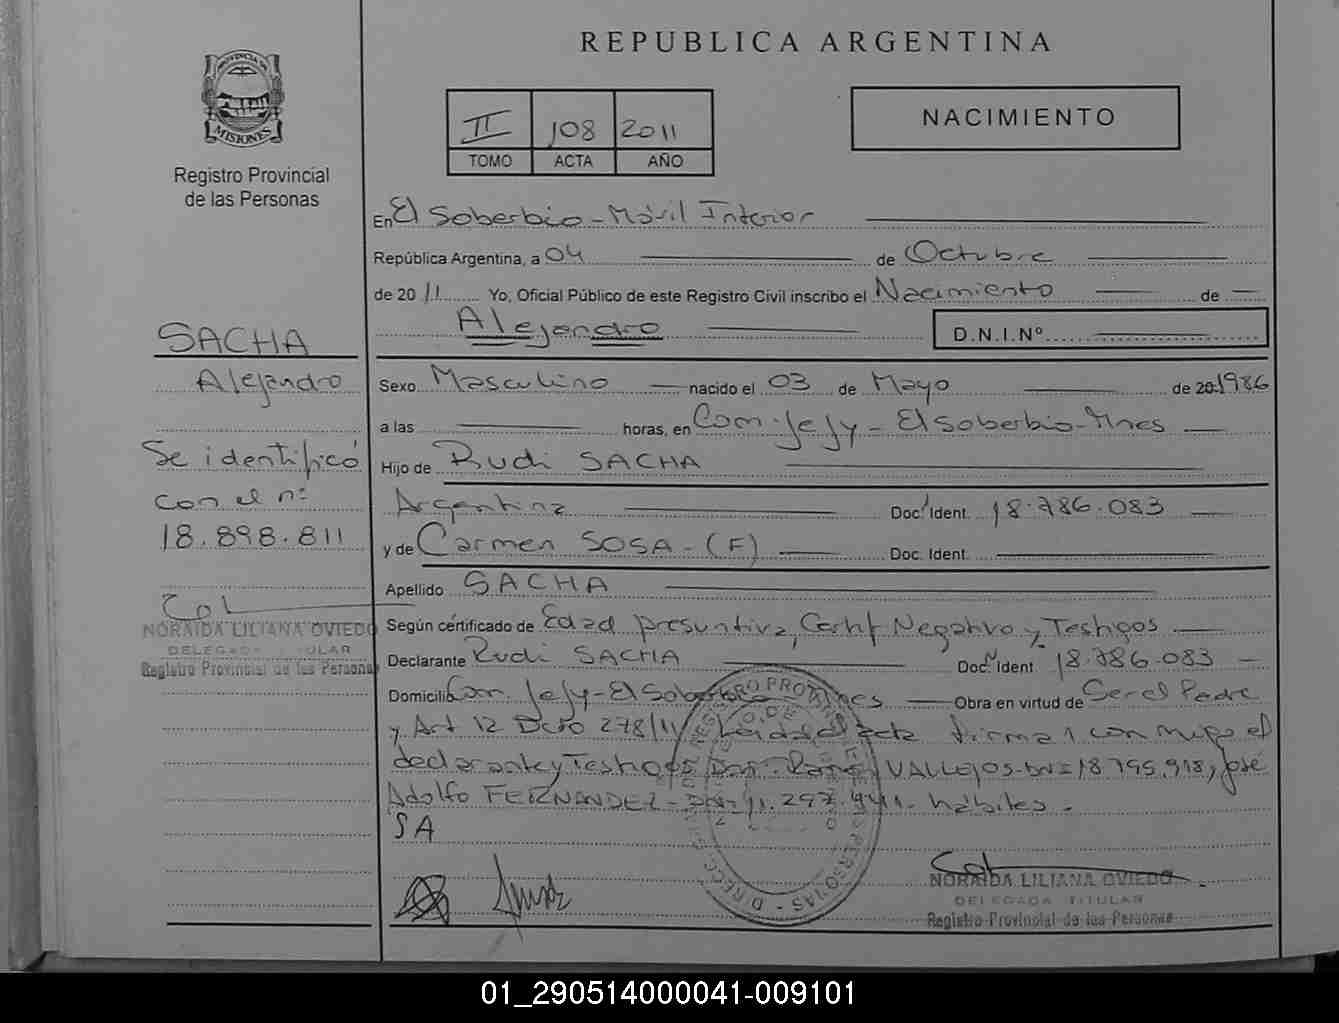 REPUBLICA ARGENTINA
PROVINCIA DE
MISIONES
Registro Provincial
de las Personas
II 108 2011
TOMO ACTA AÑO
NACIMIENTO
En El Soberbio - Móvil Interior
República Argentina, a 04 de Octubre
de 2011 Yo, Oficial Público de este Registro Civil inscribo el Nacimiento de
Alejandro D.N.I.Nº
SACHA
Alejandro
Se identificó
con el nº
18.898.811
NORAIDA LILIANA OVIEDO
DELEGADA TITULAR
Registro Provincial de las Personas
Sexo Masculino nacido el 03 de Mayo de 20 1986
a las horas, en Com. Jejy - El Soberbio - Mnes
Hijo de Rudi SACHA
Argentina Doc. Ident. 18.786.083
y de Carmen SOSA - (F) Doc. Ident.
Apellido SACHA
Según certificado de Edad presuntiva, Certif Negativo y Testigos
Declarante Rudi SACHA Doc. Ident. 18.786.083
Domicilio Com. Jejy - El Soberbio Mnes Obra en virtud de Ser el Padre
y Art 12 Dcto 278/11 Leida el acta firma con migo el
declarante y Testigos VALLEJOS - DNI 18.795.918, José
Adolfo FERNANDEZ - DNI 11.297.941 - hábiles.
SA
NORAIDA LILIANA OVIEDO
DELEGADA TITULAR
Registro Provincial de las Personas
01_290514000041-009101